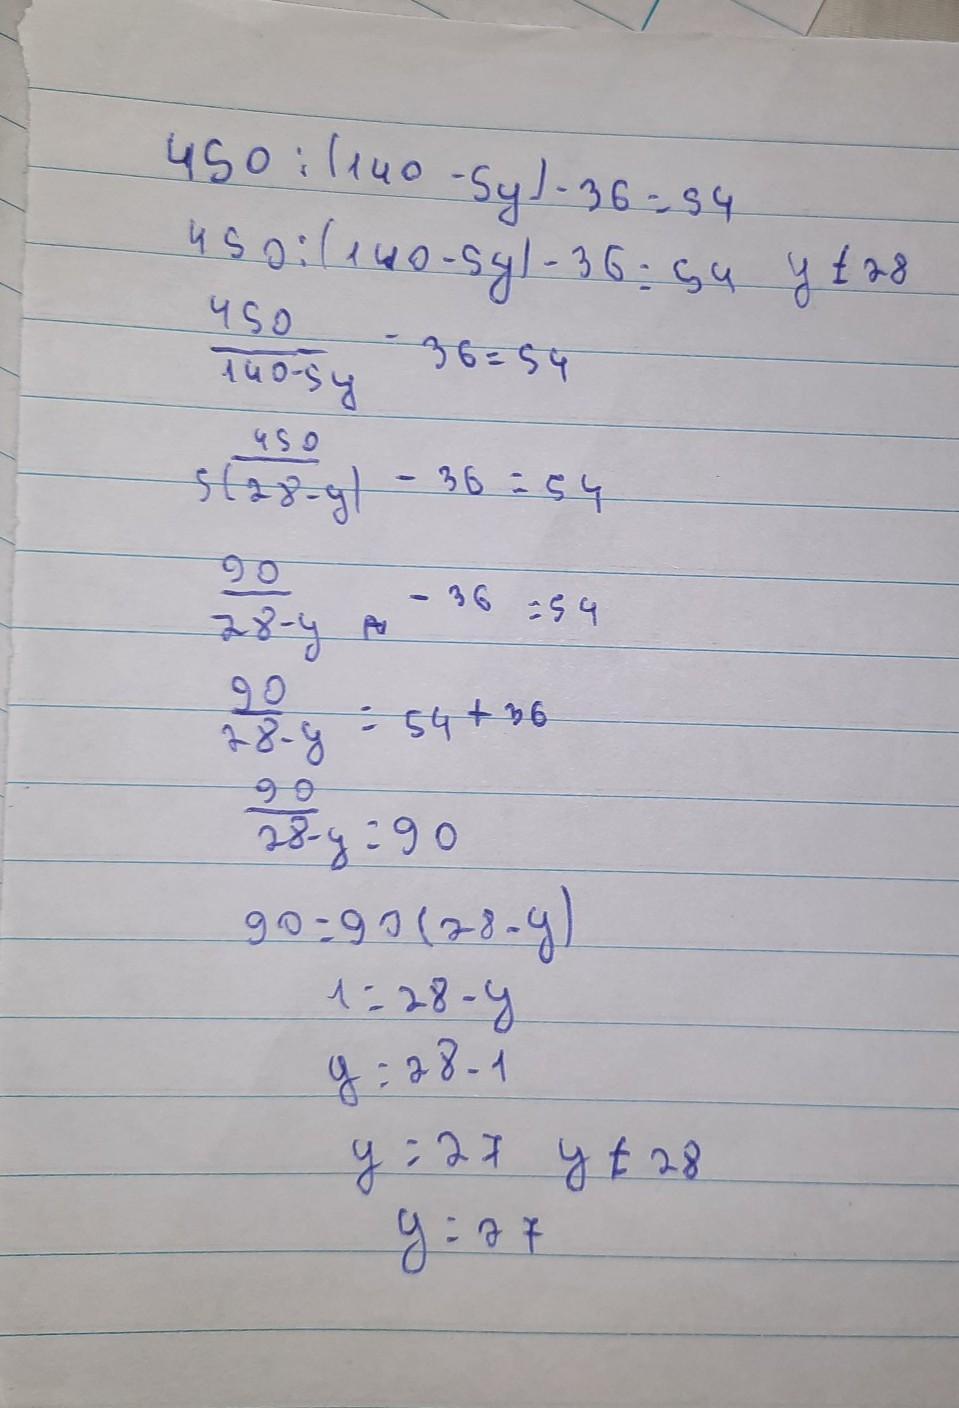 450:(140-5y)-36=54
450:(140-5y)-36=54 y≠28
450/140-5y -36=54
450/5(28-y) -36=54
90/28-y -36=54
90/28-y =54+36
90/28-y=90
90=90(28-y)
1=28-y
y=28-1
y=27 y≠28
y=27